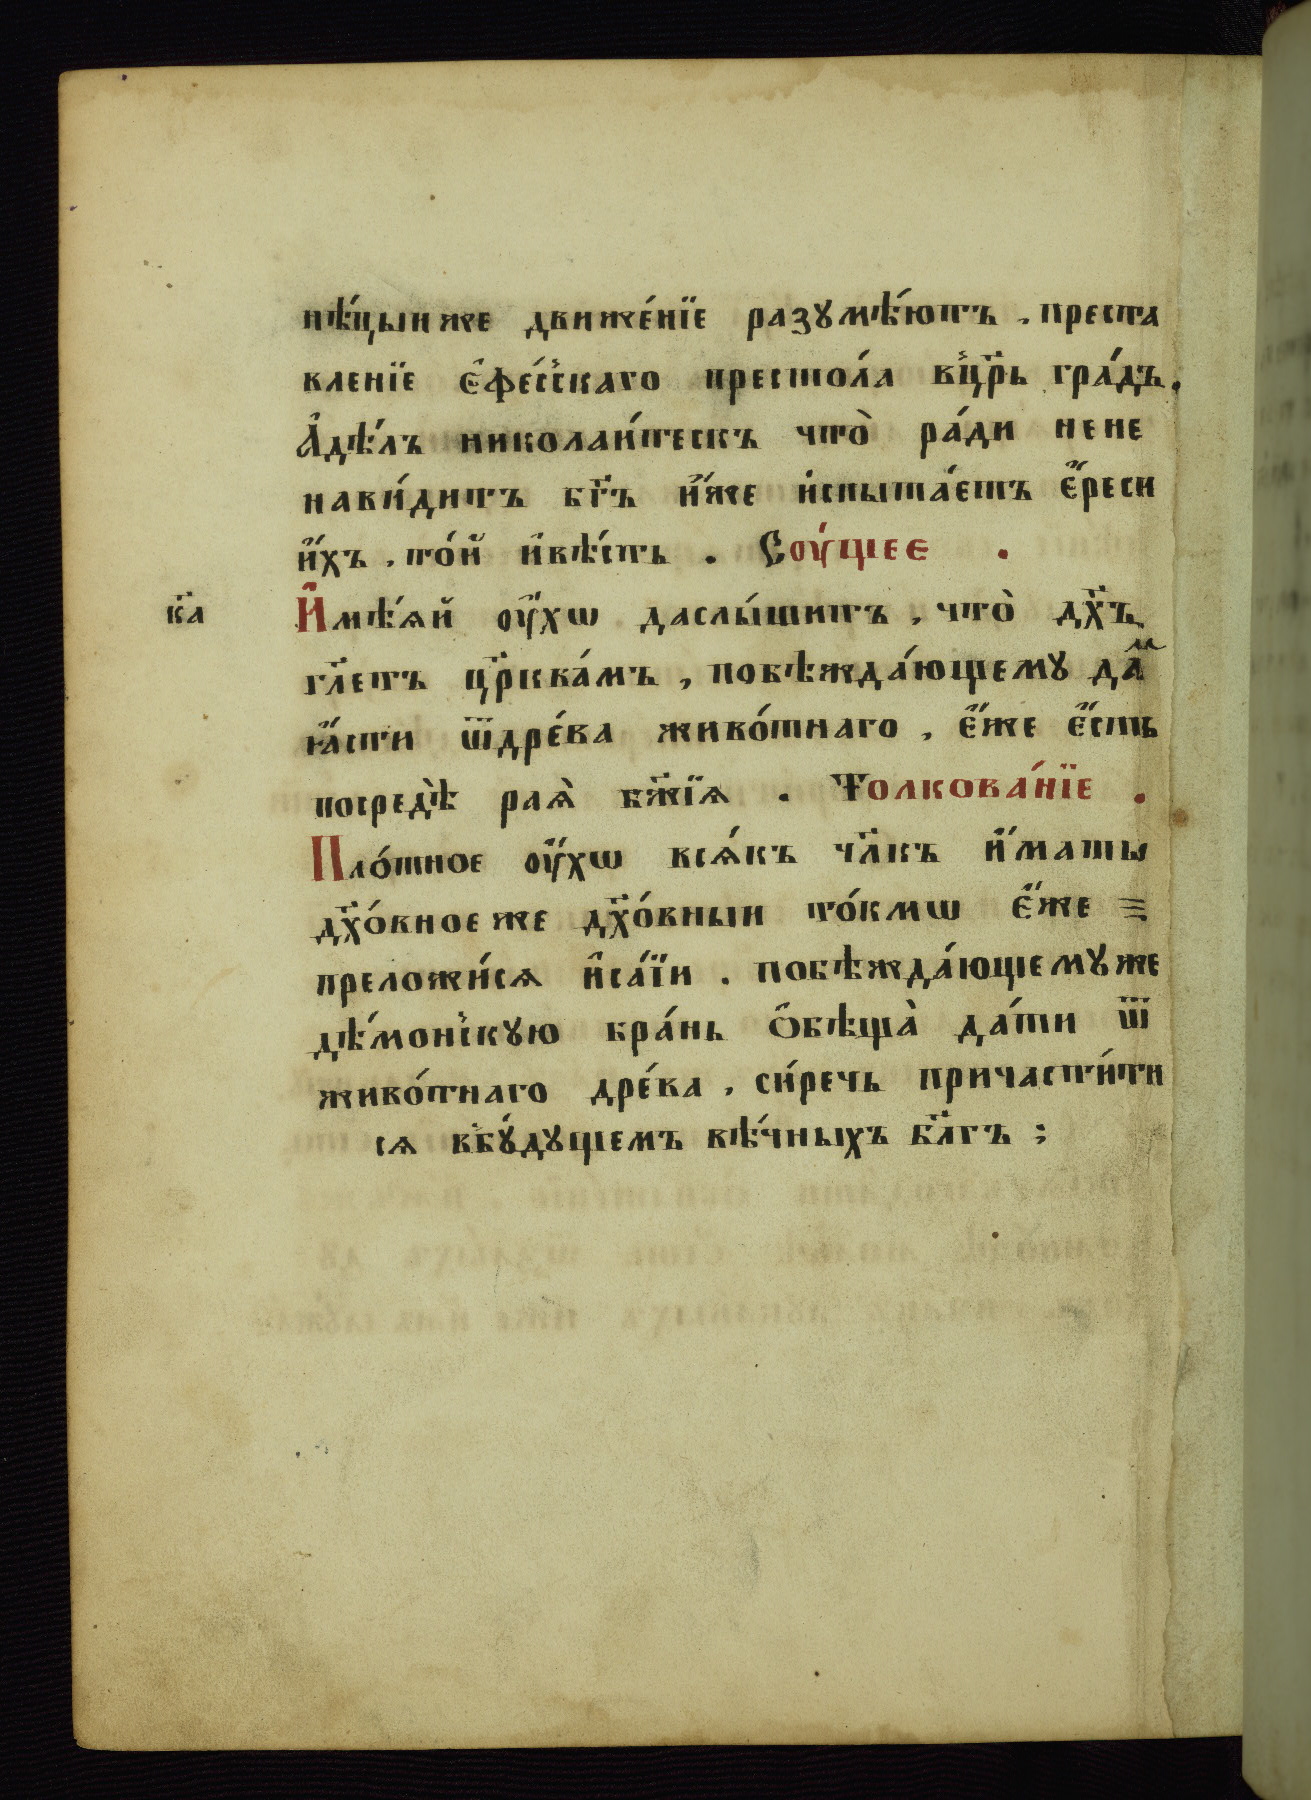 нѣ́цыиже движе́нїе разумѣ́ютъ , преста
вленїе є҆фе́сскаго престо́ла вц҃рь гра́дъ.
А҆дѣ́лъ николаи́тескъ что̀ ра́ди нене
нави́дитъ бг҃ъ и҆́же и҆спыта́етъ є҆́реси
и҆́хъ , то́й и҆вѣ́сть . Сꙋ́щее .
к҃а И҆мѣ́ѧй ᲂу҆́хѡ даслы́шитъ , что̀ дх҃ъ
гл҃етъ цр҃ква́мъ , побѣжда́ющему да́м
ꙗ҆́сти ѿдре́ва живо́тнаго , є҆́же є҆́сть
посредѣ̀ раѧ̀ бж҃їѧ . Толкова́нїе .
Пло́тное ᲂу҆́хѡ всѧ́къ чл҃къ и҆́маты
дх҃о́вноеже дх҃о́вныи то́кмѡ є҆́же
преложи́сѧ и҆са́їи . побѣжда́ющемуже
дѣ́монскую бра́нь ѻ҆бѣща̀ да́ти ѿ
живо́тнаго дре́ва , си́речь причасти́ти
сѧ вбу́дущемъ вѣ́чныхъ бл҃гъ ;